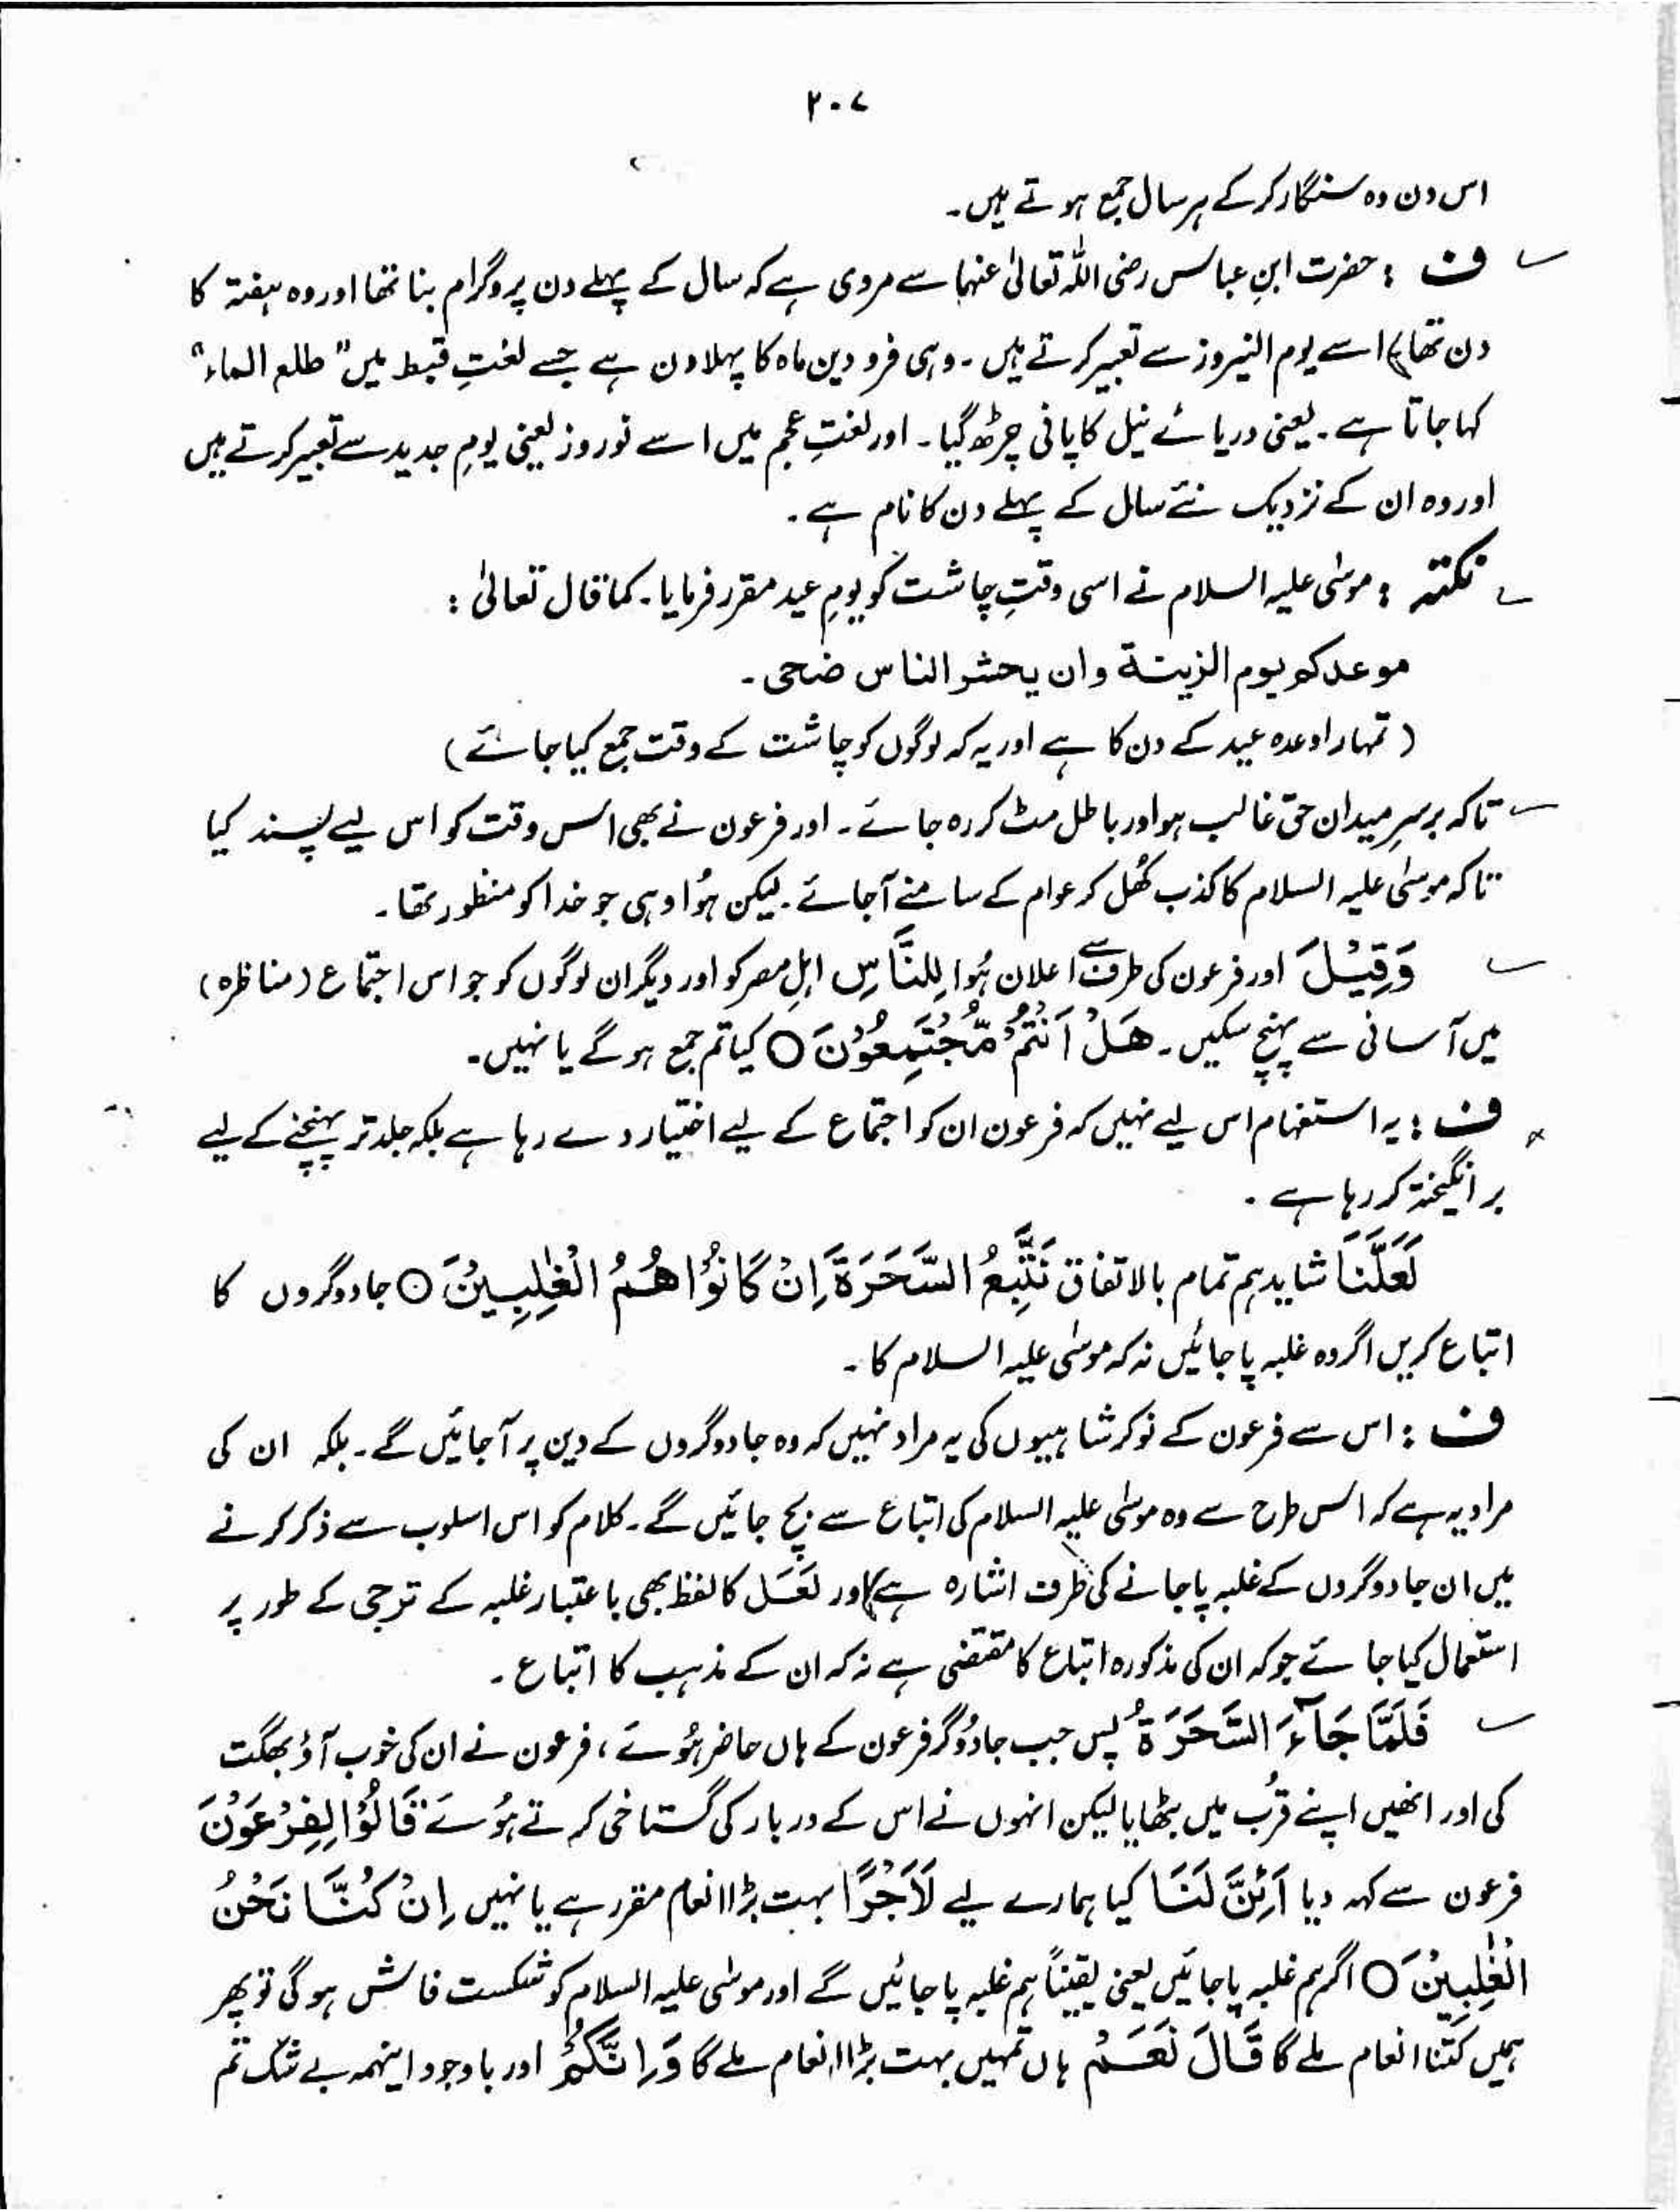 ۲۰۷
اس دن وہ سنگار کر کے ہر سال جمع ہوتے ہیں۔
ف : حضرت ابنِ عباس رضی اللہ تعالیٰ عنہما سے مروی ہے کہ سال کے پہلے دن پروگرام بنا تھا اور وہ ہفتہ کا
دن تھا) اسے یوم النیروز سے تعبیر کرتے ہیں ۔ وہی فرودین ماہ کا پہلا دن ہے جسے لغتِ قبط میں "طلع الماء"
کہا جاتا ہے۔ یعنی دریائے نیل کا پانی چڑھ گیا ۔ اور لغتِ عجم میں اسے نوروز یعنی یومِ جدید سے تعبیر کرتے ہیں
اور وہ ان کے نزدیک نئے سال کے پہلے دن کا نام ہے ۔
نکتہ : موسٰی علیہ السلام نے اسی وقتِ چاشت کو یومِ عید مقرر فرمایا۔ کما قال تعالیٰ :
موعدكم يوم الزينة وان يحشر الناس ضحى ۔
( تمہارا وعدہ عید کے دن کا ہے اور یہ کہ لوگوں کو چاشت کے وقت جمع کیا جائے )
تاکہ برسرِ میدان حق غالب ہو اور باطل مٹ کر رہ جائے ۔ اور فرعون نے بھی اس وقت کو اس لیے پسند کیا
تاکہ موسٰی علیہ السلام کا کذب کُھل کر عوام کے سامنے آجائے ۔ لیکن ہُوا وہی جو خدا کو منظور تھا ۔
وَقِیْلَ اور فرعون کی طرف سے اعلان ہُوا لِلنَّاسِ اہلِ مصر کو اور دیگر ان لوگوں کو جو اس اجتماع (مناظرہ)
میں آسانی سے پہنچ سکیں ۔ هَلْ اَنْتُمْ مُّجْتَمِعُوْنَ ○ کیا تم جمع ہو گے یا نہیں ۔
ف : یہ استفہام اس لیے نہیں کہ فرعون ان کو اجتماع کے لیے اختیار دے رہا ہے بلکہ جلد تر پہنچنے کے لیے
برانگیختہ کر رہا ہے ۔
لَعَلَّنَا شاید ہم تمام بالاتفاق نَتَّبِعُ السَّحَرَةَ اِنْ كَانُوْا هُمُ الْغٰلِبِيْنَ ○ جادوگروں کا
اتباع کریں اگر وہ غلبہ پا جائیں نہ کہ موسٰی علیہ السلام کا ۔
ف : اس سے فرعون کے نوکر شاہیوں کی یہ مراد نہیں کہ وہ جادوگروں کے دین پر آجائیں گے ۔ بلکہ ان کی
مراد یہ ہے کہ اس طرح سے وہ موسٰی علیہ السلام کی اتباع سے بچ جائیں گے ۔ کلام کو اس اسلوب سے ذکر کرنے
میں ان جادوگروں کے غلبہ پا جانے کی طرف اشارہ ہے) اور لَعَسَل کا لفظ بھی باعتبار غلبہ کے ترجی کے طور پر
استعمال کیا جائے جو کہ ان کی مذکورہ اتباع کا مقتضی ہے نہ کہ ان کے مذہب کا اتباع ۔
فَلَمَّا جَآءَ السَّحَرَةُ پس جب جادوگر فرعون کے ہاں حاضر ہُوئے ، فرعون نے ان کی خوب آؤ بھگت
کی اور انھیں اپنے قُرب میں بٹھایا لیکن انہوں نے اس کے دربار کی گستاخی کرتے ہُوئے قَالُوْا لِفِرْعَوْنَ
فرعون سے کہہ دیا اَئِنَّ لَنَا کیا ہمارے لیے لَاَجْرًا بہت بڑا انعام مقرر ہے یا نہیں اِنْ كُنَّا نَحْنُ
الْغٰلِبِيْنَ ○ اگر ہم غلبہ پا جائیں یعنی یقیناً ہم غلبہ پا جائیں گے اور موسٰی علیہ السلام کو شکست فاش ہو گی تو پھر
ہمیں کتنا انعام ملے گا قَالَ نَعَمْ ہاں تمہیں بہت بڑا انعام ملے گا وَاِنَّكُمْ اور باوجود اینہمہ بے شک تم